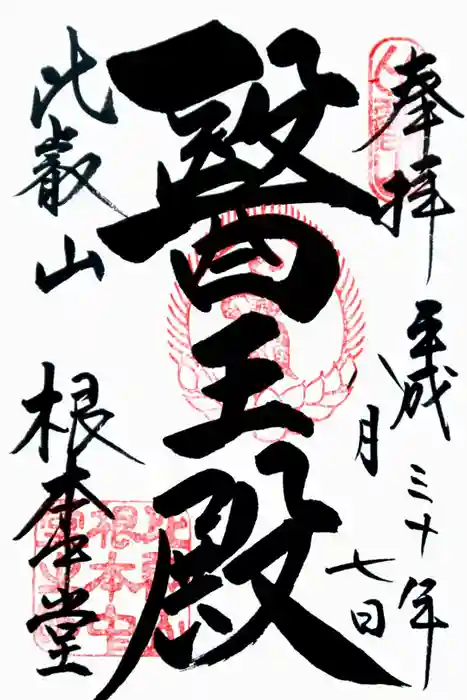 奉拝
平成三十年
月七日
醫王殿
比叡山
根本中堂
比叡山
根本中
堂之印